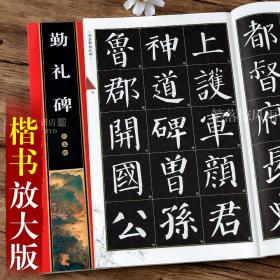 勤礼碑
楷书放大版
都督府長史
上護軍顏君
神道碑曾孫
魯郡開國公